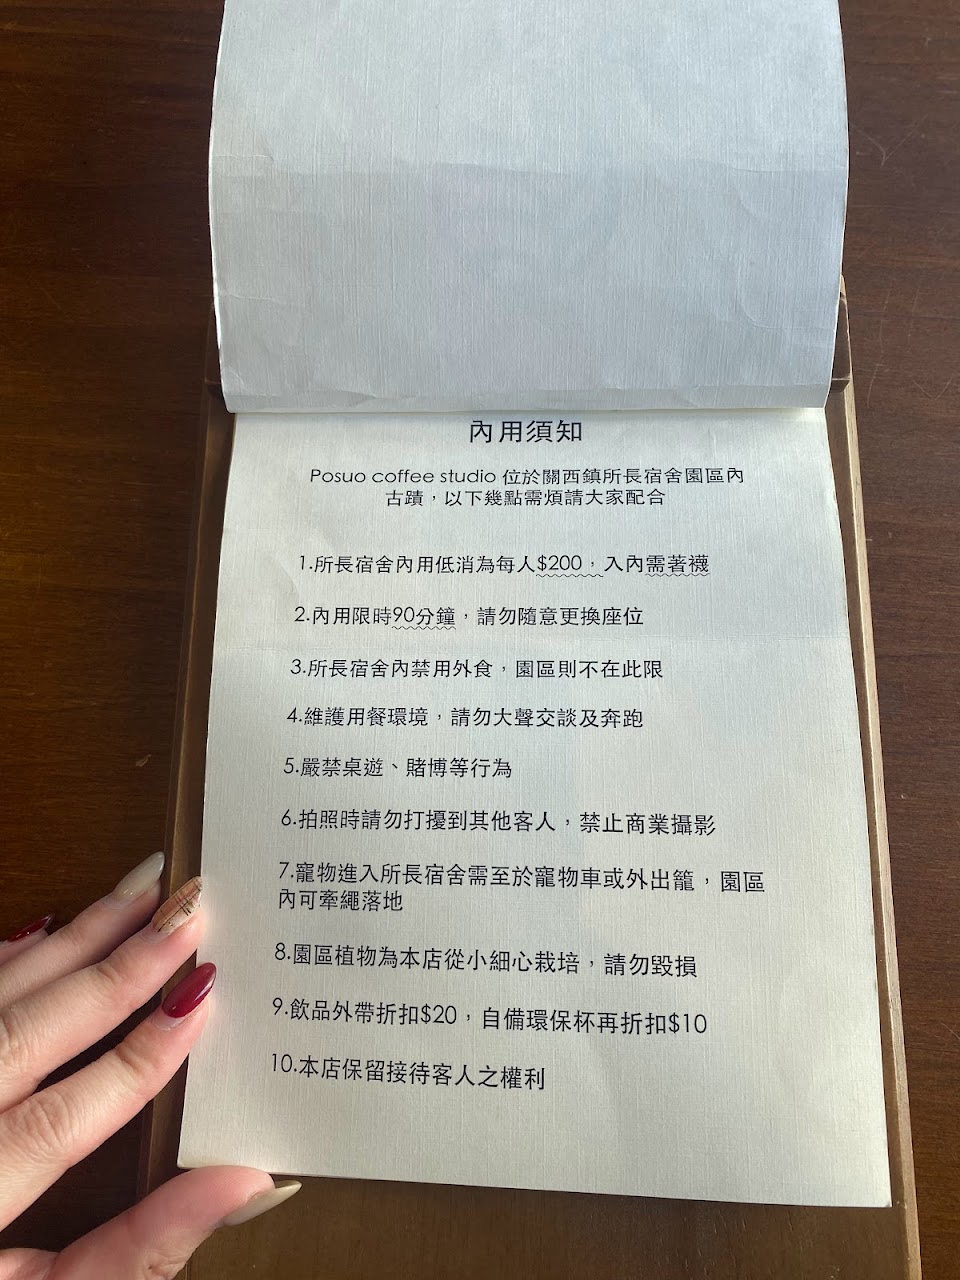 內用須知
Posuo coffee studio 位於關西鎮所長宿舍園區內
古蹟，以下幾點需煩請大家配合
1.所長宿舍內用低消為每人$200，入內需著襪
2.內用限時90分鐘，請勿隨意更換座位
3.所長宿舍內禁用外食，園區則不在此限
4.維護用餐環境，請勿大聲交談及奔跑
5.嚴禁桌遊、賭博等行為
6.拍照時請勿打擾到其他客人，禁止商業攝影
7.寵物進入所長宿舍需至於寵物車或外出籠，園區
內可牽繩落地
8.園區植物為本店從小細心栽培，請勿毀損
9.飲品外帶折扣$20，自備環保杯再折扣$10
10.本店保留接待客人之權利